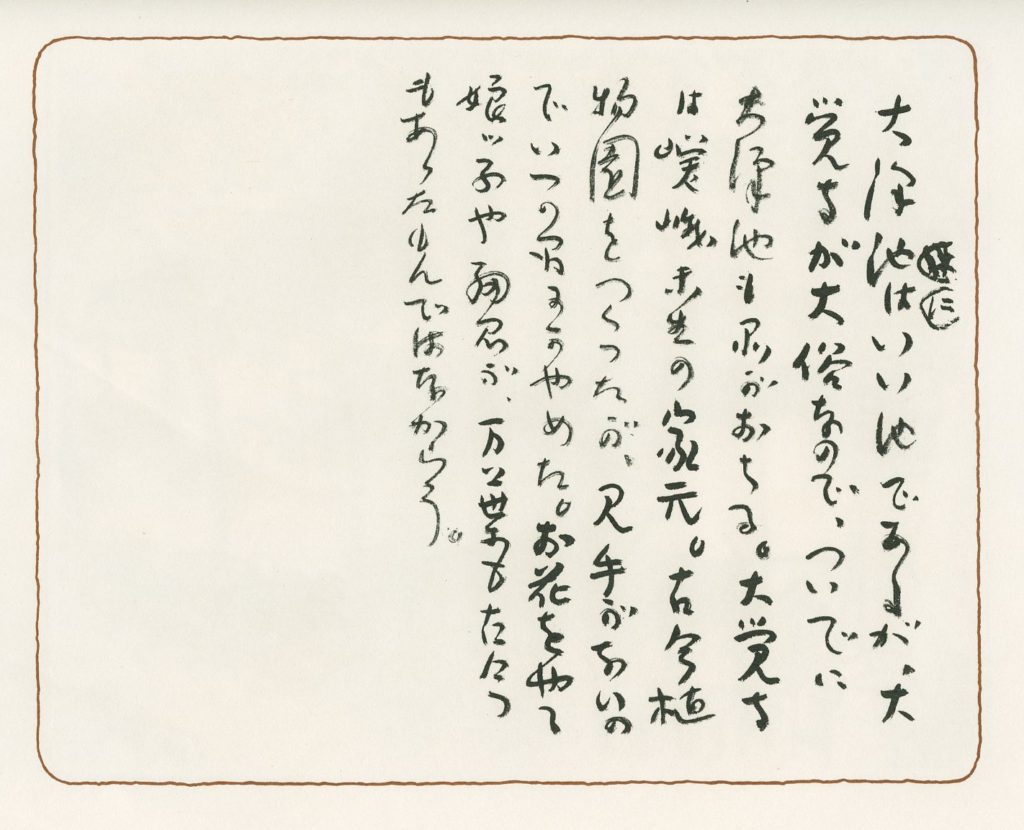 大沢池はいい池であるが、大
覚寺が大俗なので、ついでに
大沢池も品がおちる。大覚寺
は嵯峨未生の家元。古今植
物園をつくったが、見手がないの
でいつの間にかやめた。お花をやる
娘ッ子や
が、万葉もたつ
もあったもんではなかろう。